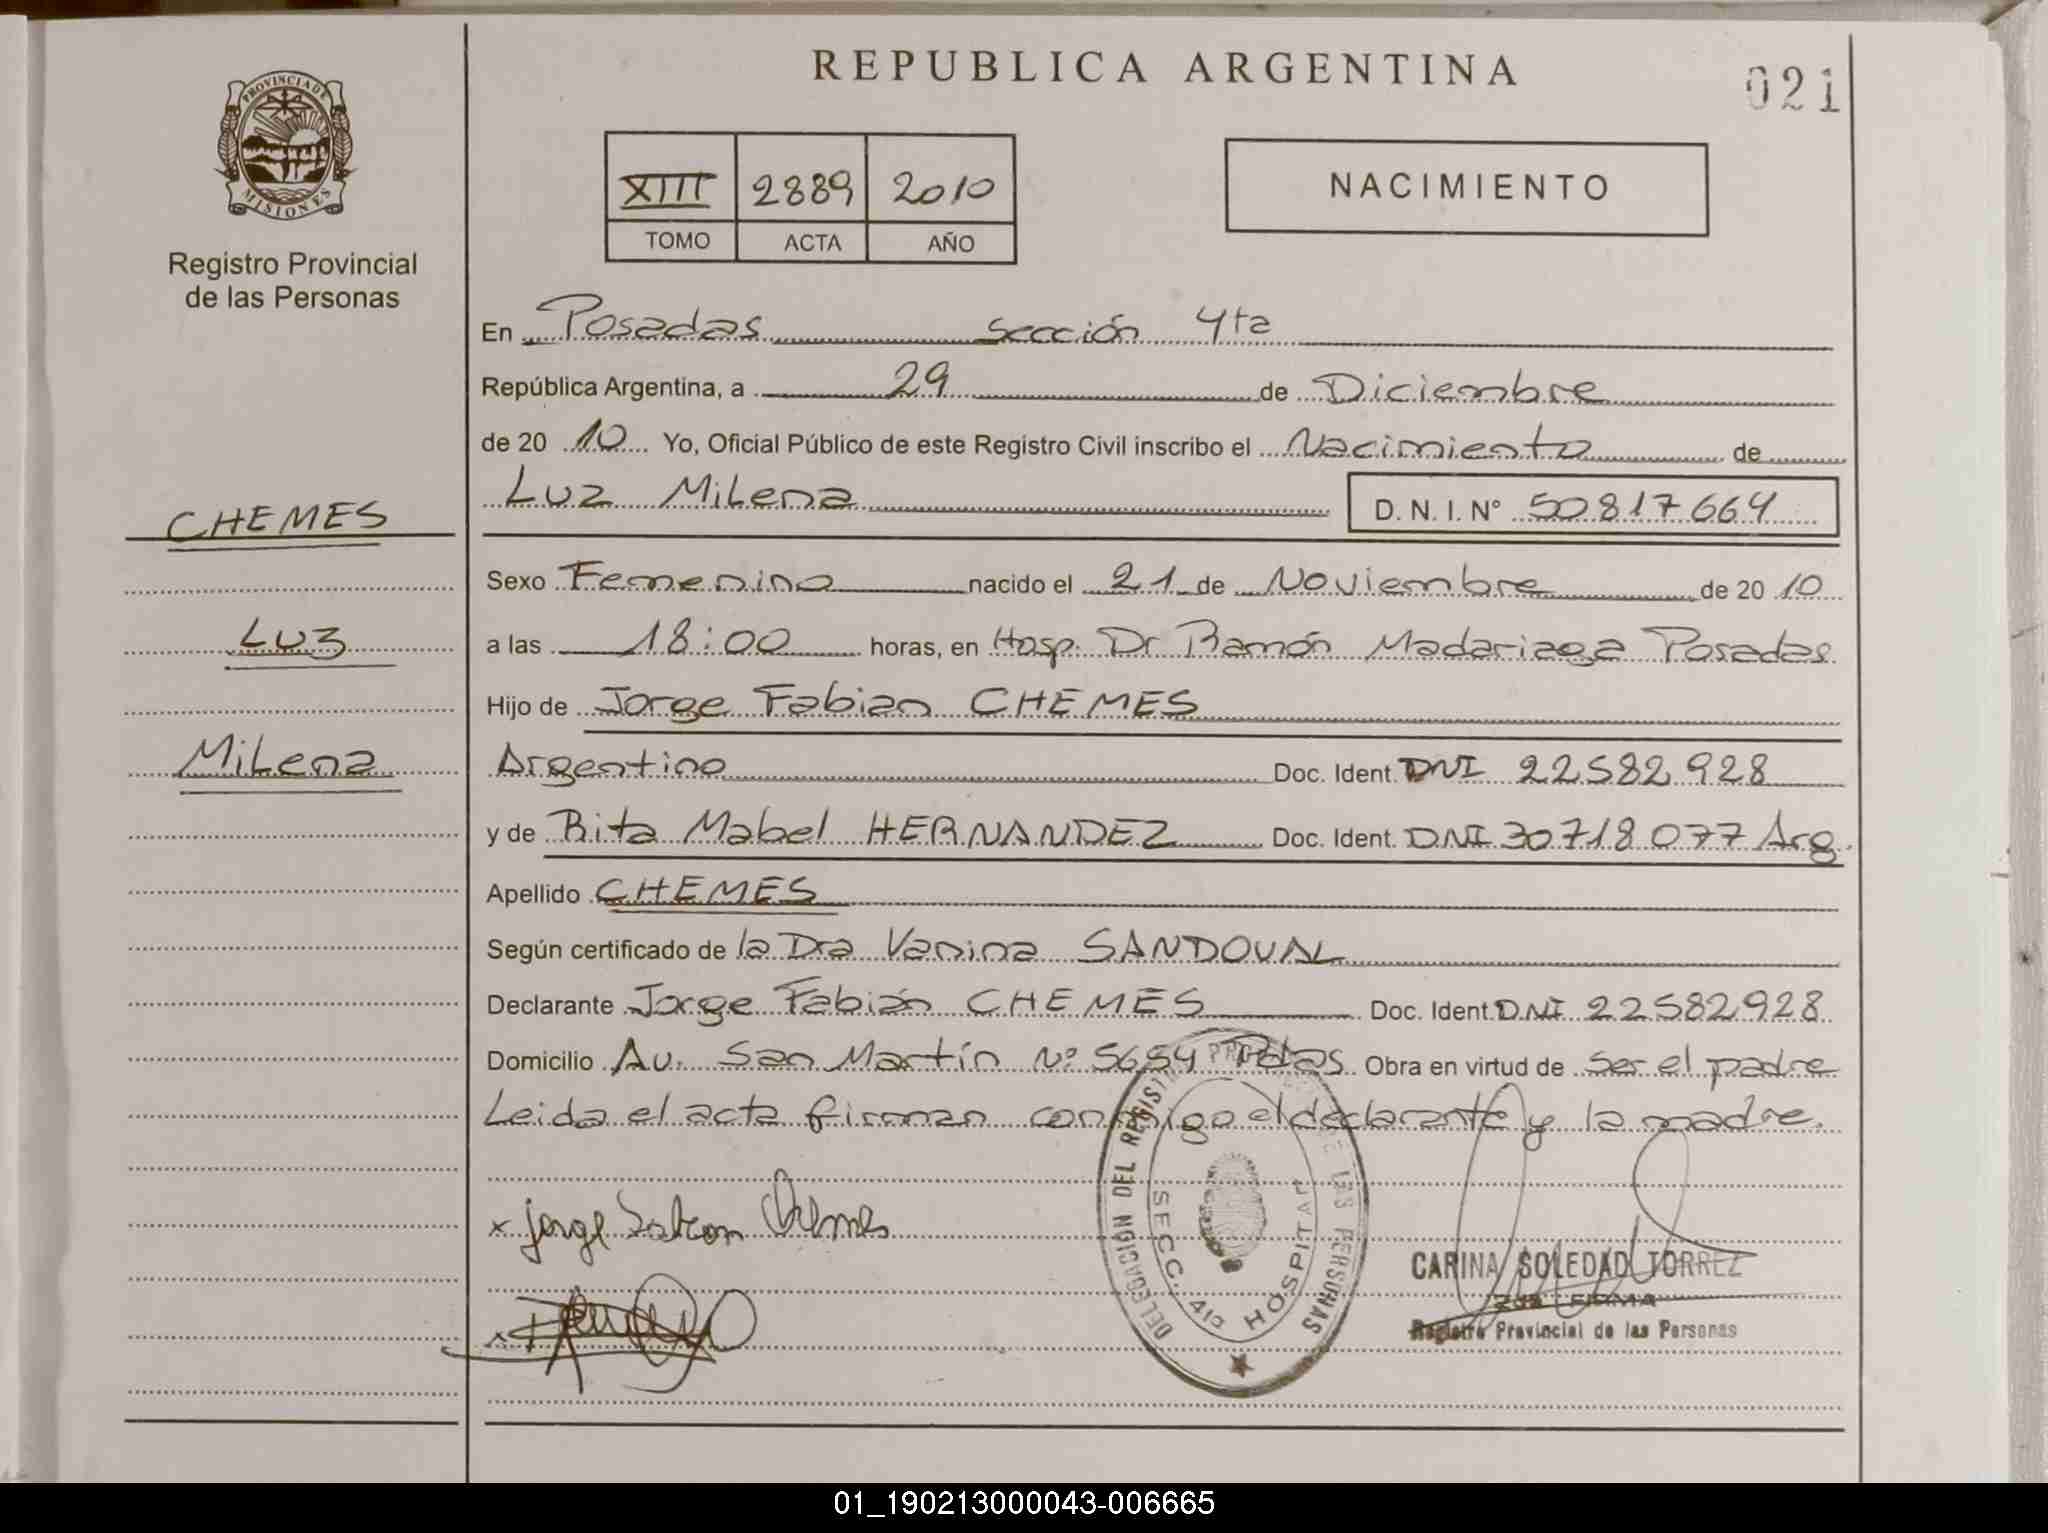 REPUBLICA ARGENTINA
021
PROVINCIA DE
MISIONES
Registro Provincial
de las Personas
XIII 2889 2010
TOMO ACTA AÑO
NACIMIENTO
En Posadas sección 4ta
República Argentina, a 29 de Diciembre
de 20 10 Yo, Oficial Público de este Registro Civil inscribo el Nacimiento de
Luz Milena D. N. I. N° 50817664
CHEMES
Luz
Milena
Sexo Femenino nacido el 21 de Noviembre de 20 10
a las 18:00 horas, en Hosp. Dr Ramón Madariaga Posadas
Hijo de Jorge Fabian CHEMES
Argentino Doc. Ident. DNI 22582928
y de Rita Mabel HERNANDEZ Doc. Ident. DNI 30718077 Arg.
Apellido CHEMES
Según certificado de la Dra Vanina SANDOVAL
Declarante Jorge Fabián CHEMES Doc. Ident. DNI 22582928
Domicilio Av. San Martín N° 5654 Pdas. Obra en virtud de ser el padre
Leida el acta firman conmigo el declarante y la madre.
x Jorge Fabian Chemes
x
DELEGACION DEL REGISTRO DE LAS PERSONAS
SECC. 4ta HOSPITAL
CARINA SOLEDAD TORREZ
2da FIRMA
Registro Provincial de las Personas
01_190213000043-006665